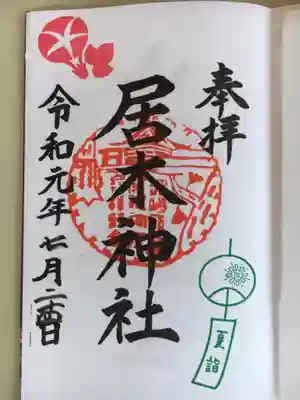 奉拝
居木神社
令和元年七月日
夏詣